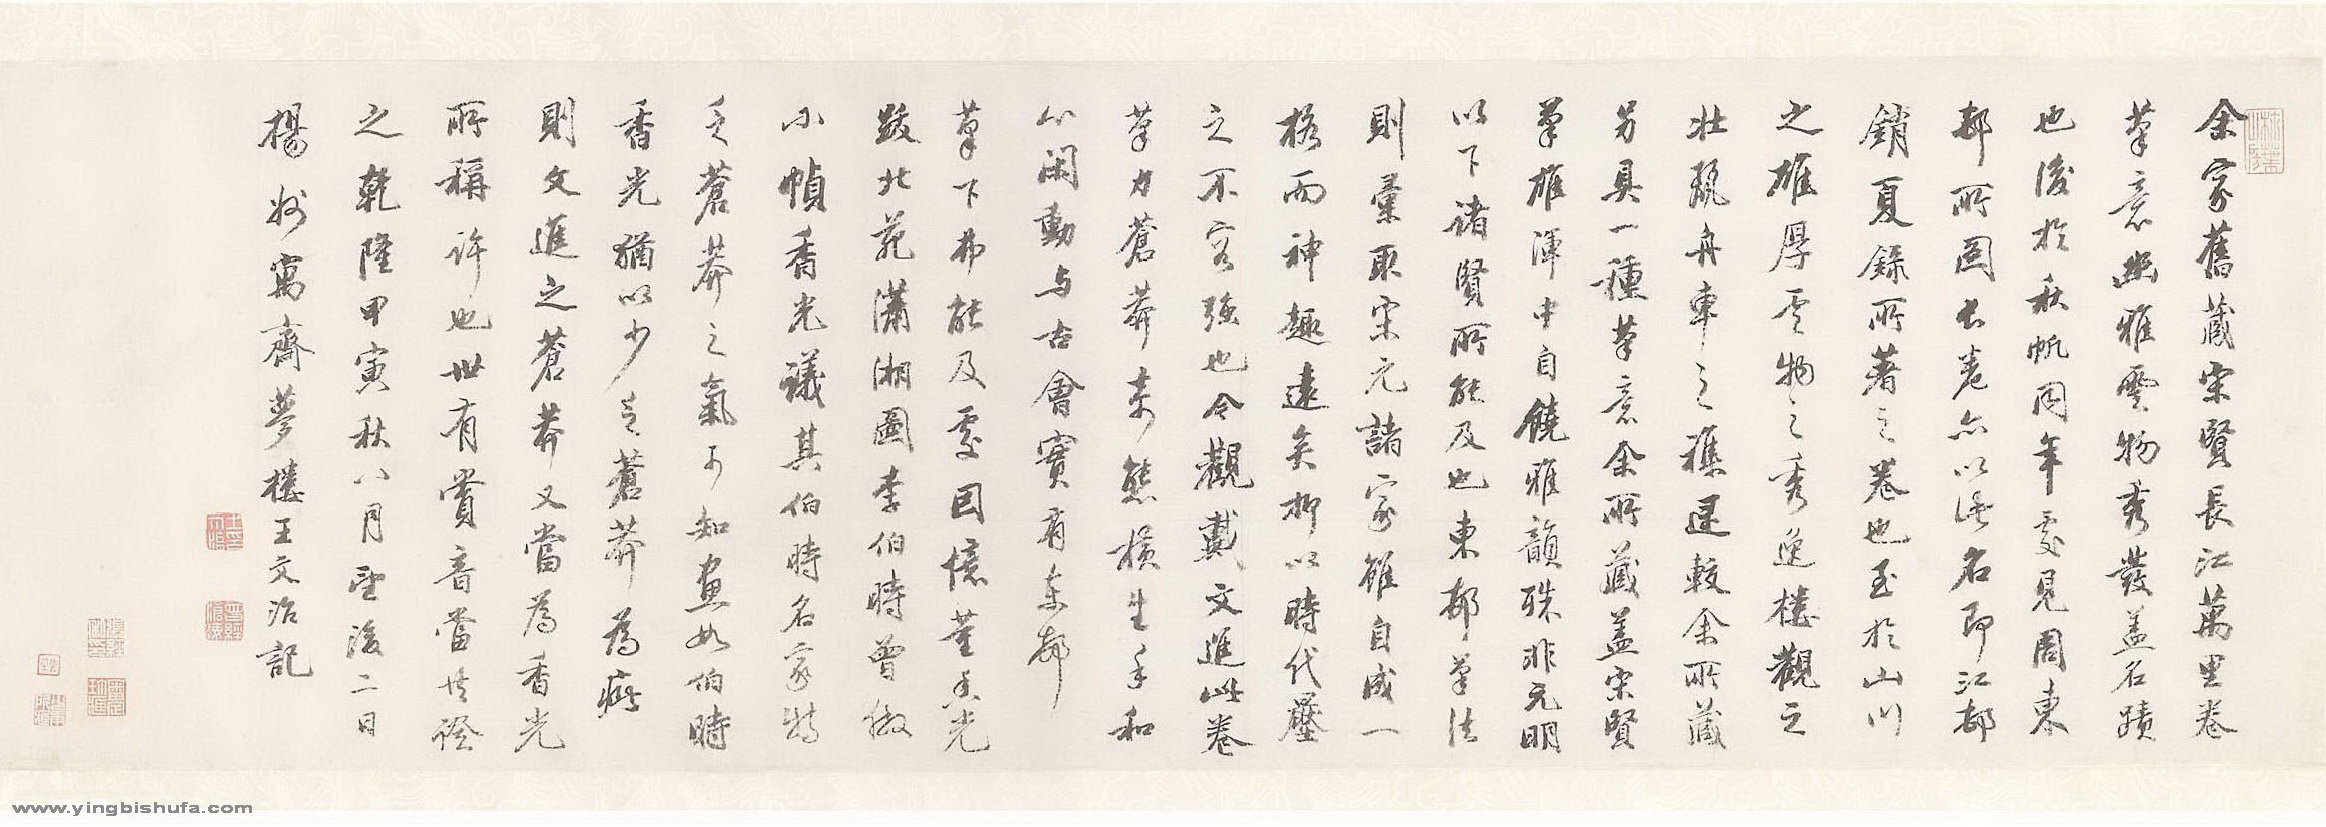 余家舊藏宋賢長江萬里卷
筆意幽雅雲物秀發蓋名蹟
也後於秋帆同年處見周東
邨所圖長卷亦以此名即江邨
銷夏錄所著之卷也至於山川
之雄厚雲物之秀逸樓觀之
壯飛舟車之遝余所藏
另具一種筆意余所藏蓋宋賢
筆雄渾中自饒雅韻殊非元明
以下諸賢所能及也東邨筆法
則彙取宋元諸家雖自成一
格而神趣遠矣抑以時代壓
之不容強也今觀戴文進此卷
筆力蒼莽奇態橫生手和
心閑動与古會實有東邨
筆下弗能及處因憶董香光
跋北苑瀟湘圖李伯時曾倣
小幀香光議其伯時名家特
乏蒼莽之氣可知畫如伯時
香光猶以少乏蒼莽為疵
則文進之蒼莽又當為香光
所稱許也世有賞音當共證
之乾隆甲寅秋八月望後二日
揚州寓齋夢樓王文治記
www.yingbishufa.com